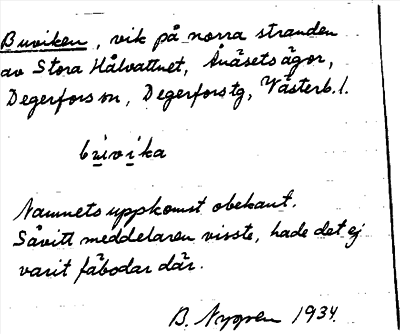 Buviken, vik på norra stranden
av Stora Hålvattnet, Ånäsets ägor,
Degerfors sn, Degerfors tg, Västerb. l.
bùvìka
Namnets uppkomst obekant.
Såvitt meddelaren visste, hade det ej
varit fäbodar där.
B. Nygren 1934.